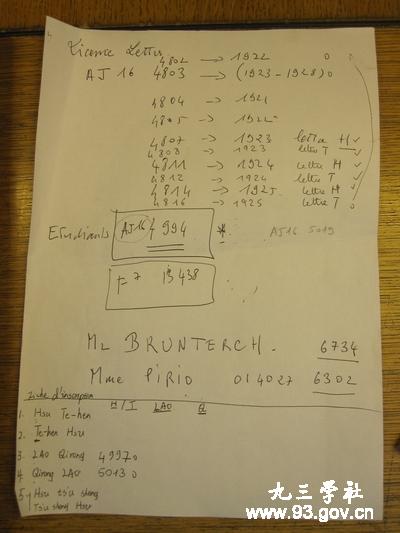 Licence Lettres
4802 → 1922 0 0
AJ 16 4803 → (1923-1928) 0
4804 → 1921
4805 → 1922
4807 → 1923 lettre H ✓
4808 → 1923 lettre T
4811 → 1924 lettre H ✓
4812 → 1924 lettre T ✓
4814 → 1925 lettre H ✓
4816 → 1925 lettre T 0
Etudiants AJ16 4994 * AJ16 5019
F7 13438
Mr BRUNTERCH. 6734
Mme PIRIO 014027 6302
Fiche d'inscription H/T LAO Q
1. Hsu Te-hen
2. Te-hen Hsu
3. LAO Qirong 4997 0
4 Qirong LAO 5013 0
5 Hsu tsu sheng
Tsu sheng Hsu
九三学社
www.93.gov.cn